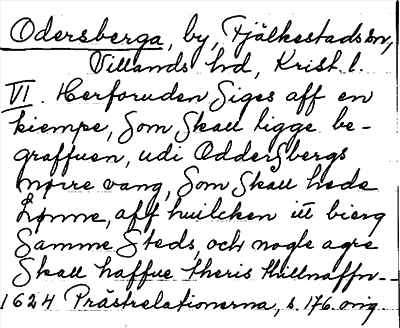 Odersberga, by, Fjälkestads sn,
Villands hd, Krist. l.
VI. Herforuden Siges aff en
kiempe, Som Skall ligge be-
graffuen, udi Oddersbergs
nørre vang, Som Skall hede
Lønne, aff huilcken itt bierg
Samme Steds, och nogle agre
Skall haffue theris thillnaffn--
1624 Prästrelationerna, s. 176 orig.